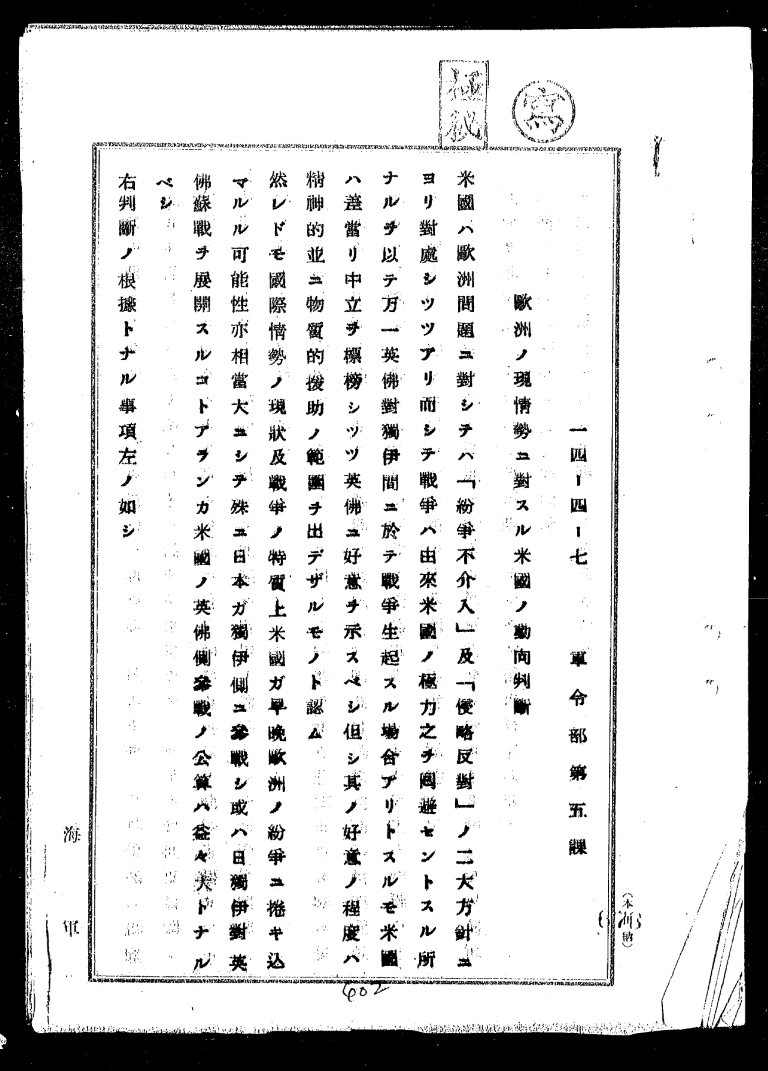 寫
極祕
一四ー四ー七　軍令部第五課
歐洲ノ現情勢ニ對スル米國ノ動向判斷
米國ハ歐洲問題ニ對シテハ「紛爭不介入」及「侵略反對」ノ二大方針ニ
ヨリ對處シツツアリ而シテ戰爭ハ由來米國ノ極力之ヲ囘避セントスル所
ナルヲ以テ万一英佛對獨伊間ニ於テ戰爭生起スル場合アリトスルモ米國
ハ差當リ中立ヲ標榜シツツ英佛ニ好意ヲ示スベシ但シ其ノ好意ノ程度ハ
精神的並ニ物質的援助ノ範圍ヲ出デザルモノト認ム
然レドモ國際情勢ノ現狀及戰爭ノ特質上米國ガ早晩歐洲ノ紛爭ニ捲キ込
マルル可能性亦相當大ニシテ殊ニ日本ガ獨伊側ニ參戰シ或ハ日獨伊對英
佛蘇戰ヲ展開スルコトアランカ米國ノ英佛側參戰ノ公算ハ益々大トナル
ベシ
右判斷ノ根據トナル事項左ノ如シ
海軍
602